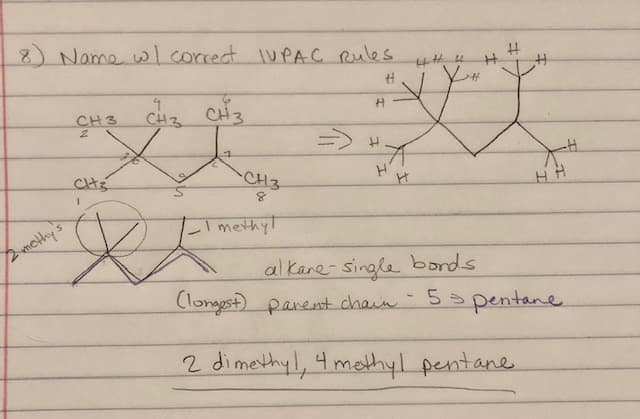 8) Name w/ correct IUPAC Rules
H H H H H H
H H
H
CH3 CH3 CH3
2 4 6
3 C C 7
⇒ H H
CH3 S CH3
1 8
H H H H
2 methy's
1 methyl
alkane - single bonds
(longest) parent chain - 5 → pentane
2 dimethyl, 4 methyl pentane